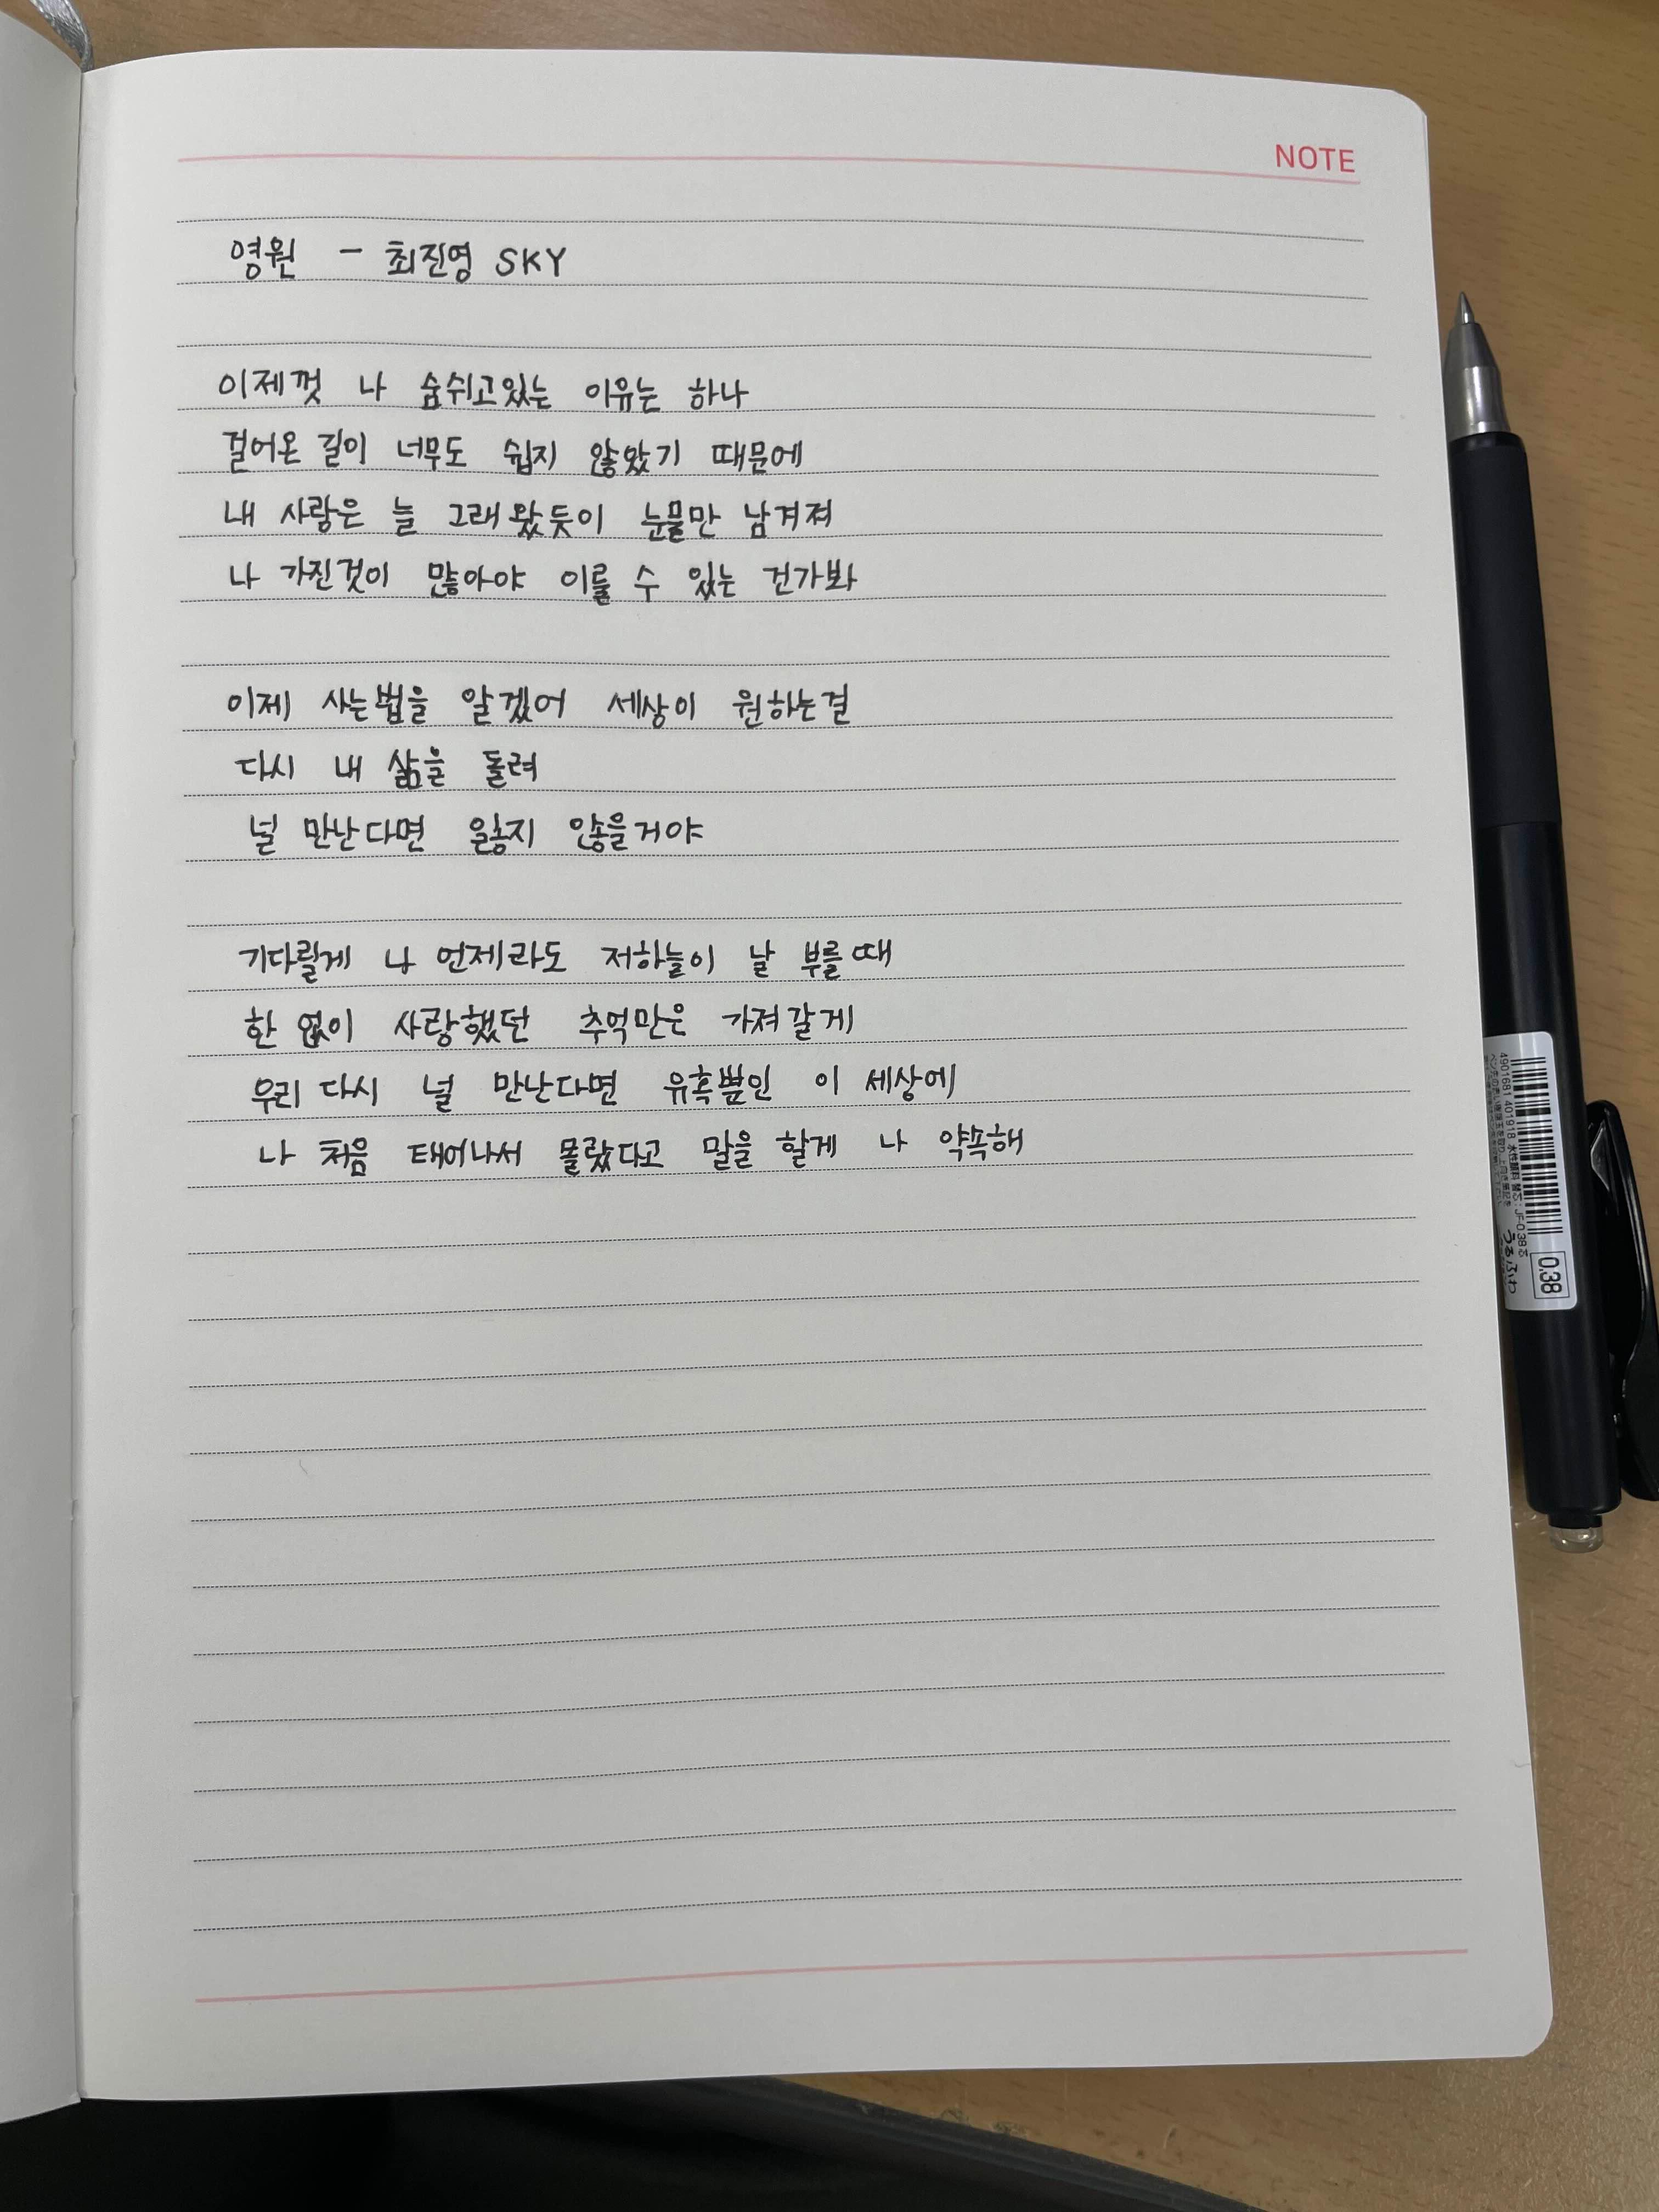 NOTE
영원 - 최진영 SKY
이제껏 나 숨쉬고있는 이유는 하나
걸어온 길이 너무도 쉽지 않았기 때문에
내 사랑은 늘 그래왔듯이 눈물만 남겨져
나 가진것이 많아야 이룰 수 있는 건가봐
이제 사는법을 알겠어 세상이 원하는걸
다시 내 삶을 돌려
널 만난다면 잃지 않을거야
기다릴게 나 언제라도 저하늘이 날 부를때
한 없이 사랑했던 추억만은 가져갈게
우리 다시 널 만난다면 유혹뿐인 이 세상에
나 처음 태어나서 몰랐다고 말을 할게 나 약속해
4901681 401918 水性顔料 替芯:JF-0.38芯
0.38